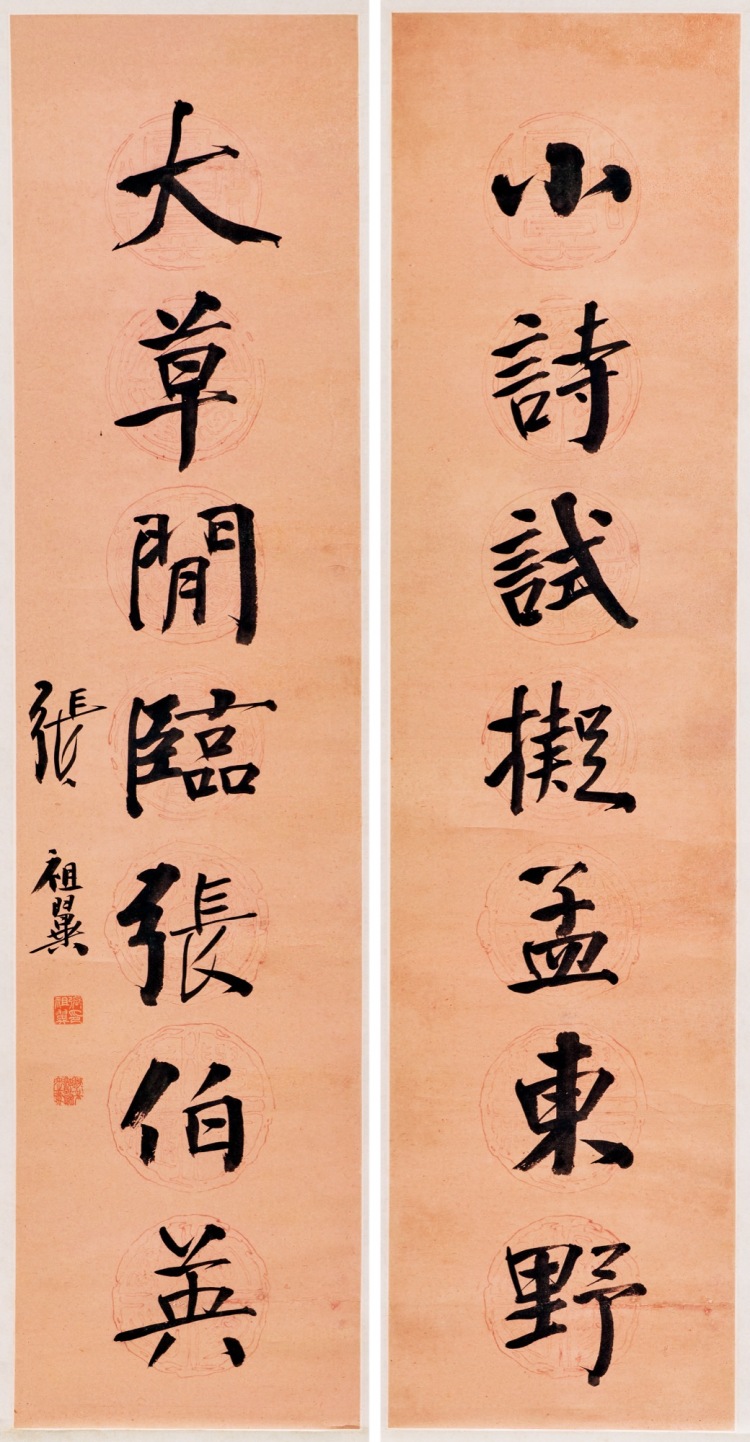 小詩試擬孟東野
大草閒臨張伯英
張祖翼